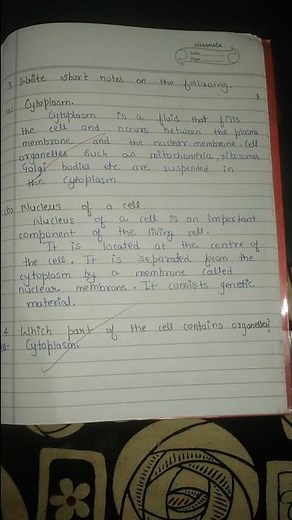 classmate
Date
Page
3 Write short notes on the following.
(a) Cytoplasm.
Cytoplasm is a fluid that fills
the cell and occurs between the plasma
membrane and the nuclear membrane. Cell
organelles such as mitochondria, ribosomes
Golgi bodies etc are suspended in
the Cytoplasm
(b) Nucleus of a cell
Nucleus of a cell is an important
component of the living cell.
It is located at the centre of
the cell. It is separated from the
cytoplasm by a membrane called
nuclear membrane. It consists genetic
material.
4 Which part of the cell contains organelles?
Cytoplasm.